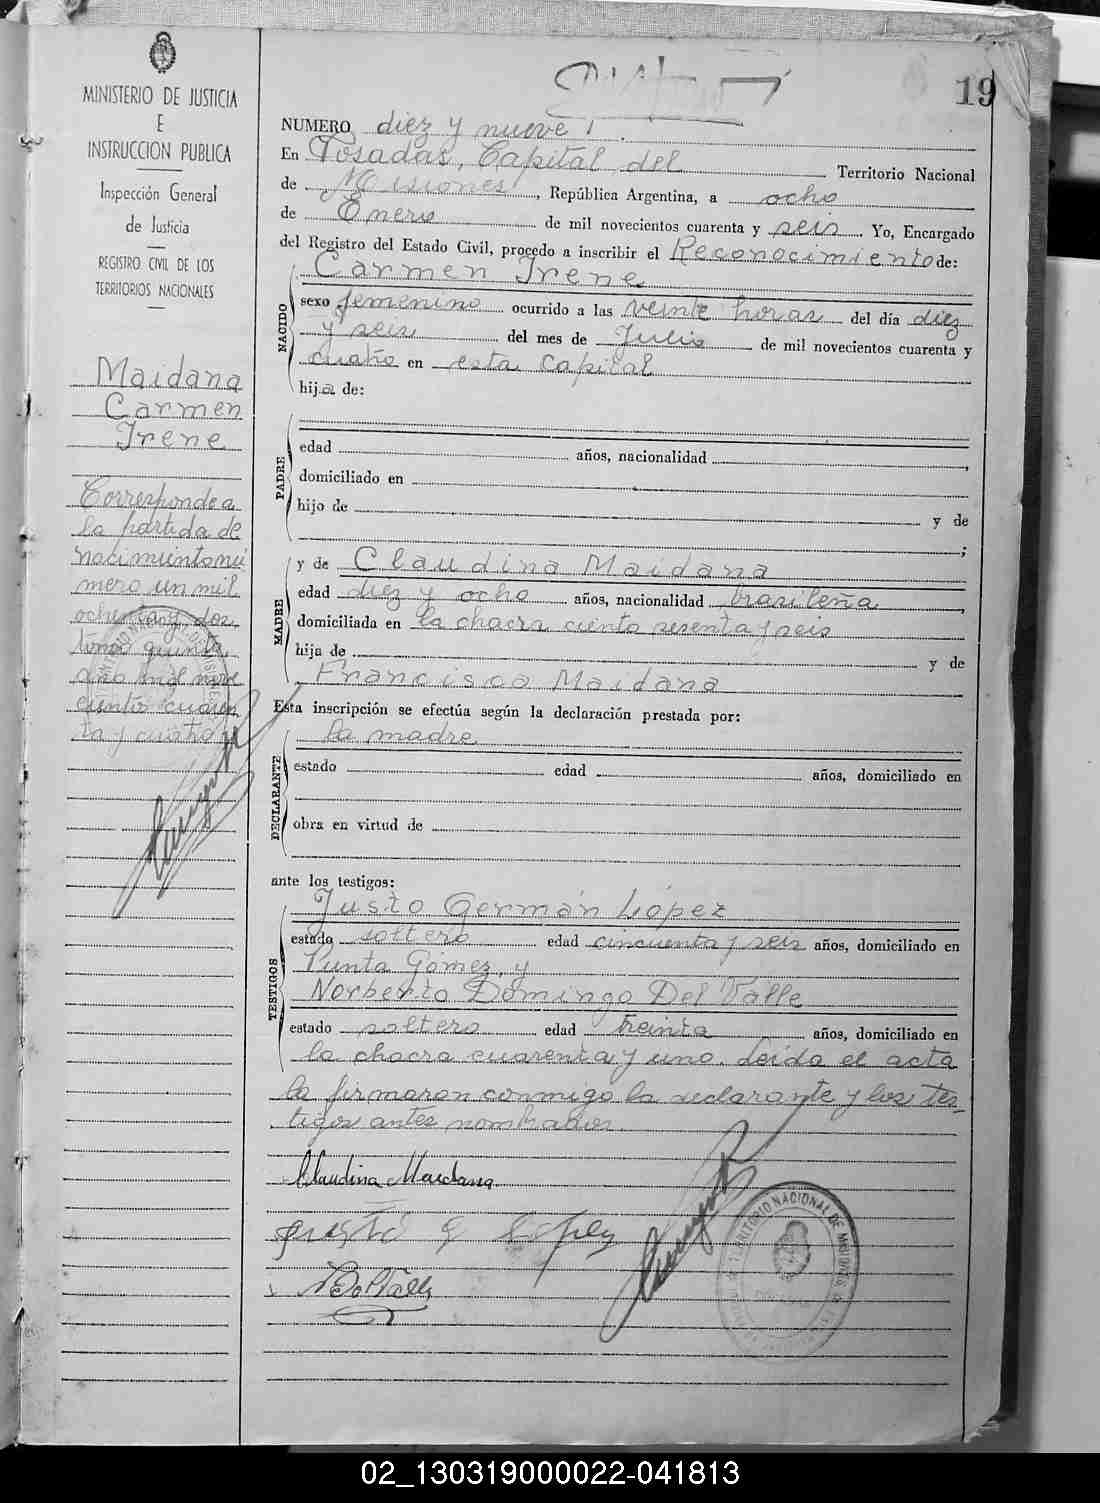 19
MINISTERIO DE JUSTICIA
E
INSTRUCCION PUBLICA
Inspección General
de Justicia
REGISTRO CIVIL DE LOS
TERRITORIOS NACIONALES
Maidana
Carmen
Irene
Corresponde a
la partida de
nacimiento nú
mero un mil
ochenta y dos
tomo quinto
año mil nove
cientos cuaren
ta y cuatro
NUMERO diez y nueve
En Posadas, Capital del Territorio Nacional
de Misiones, República Argentina, a ocho
de Enero de mil novecientos cuarenta y seis. Yo, Encargado
del Registro del Estado Civil, procedo a inscribir el Reconocimiento de:
NACIDO
Carmen Irene
sexo femenino ocurrido a las veinte horas del día diez
y seis del mes de Julio de mil novecientos cuarenta y
cuatro en esta Capital
hija de:
PADRE
edad años, nacionalidad ,
domiciliado en
hijo de y de
;
MADRE
y de Claudina Maidana
edad diez y ocho años, nacionalidad brasileña,
domiciliada en la chacra ciento sesenta y seis
hija de y de
Francisca Maidana
Esta inscripción se efectúa según la declaración prestada por:
DECLARANTE
la madre
estado edad años, domiciliado en
obra en virtud de
ante los testigos:
TESTIGOS
Justo Germán López
estado soltero edad cincuenta y seis años, domiciliado en
Punta Gómez, y
Norberto Domingo Del Valle
estado soltero edad treinta años, domiciliado en
la chacra cuarenta y uno. Leída el acta
la firmaron conmigo la declarante y los tes-
tigos antes nombrados.
Claudina Maidana
Justo G López
N D Del Valle
TERRITORIO NACIONAL DE MISIONES
02_130319000022-041813